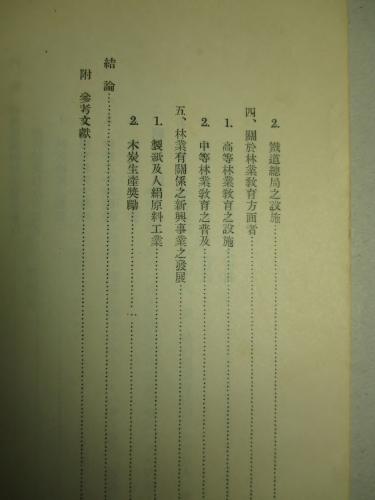 2. 鐵道總局之設施
四、關於林業教育方面者
1. 高等林業教育之設施
2. 中等林業教育之普及
五、林業有關係之新興事業之發展
1. 製紙及人絹原料工業
2. 木炭生產奬勵
結論
附 參考文獻